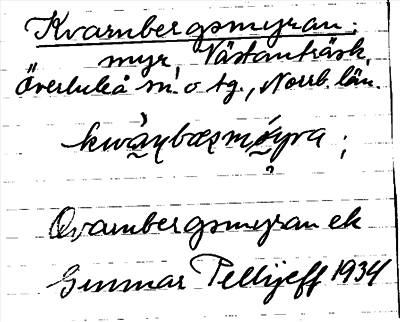 Kvarnbergsmyran;
myr, Västanträsk,
Överluleå sn. o tg., Norrb. län.
kwa̰ɳbæʂmó̰yra;
?
Qvarnbergsmyran ek
Gunnar Pellijeff 1934